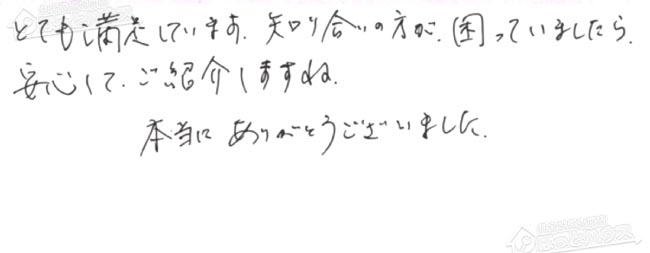 とても満足しています。知り合いの方が、困っていましたら、
安心して、ご紹介しますね。
本当にありがとうございました。